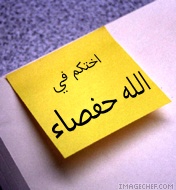 اختكم في
الله حفصاء
IMAGECHEF.COM